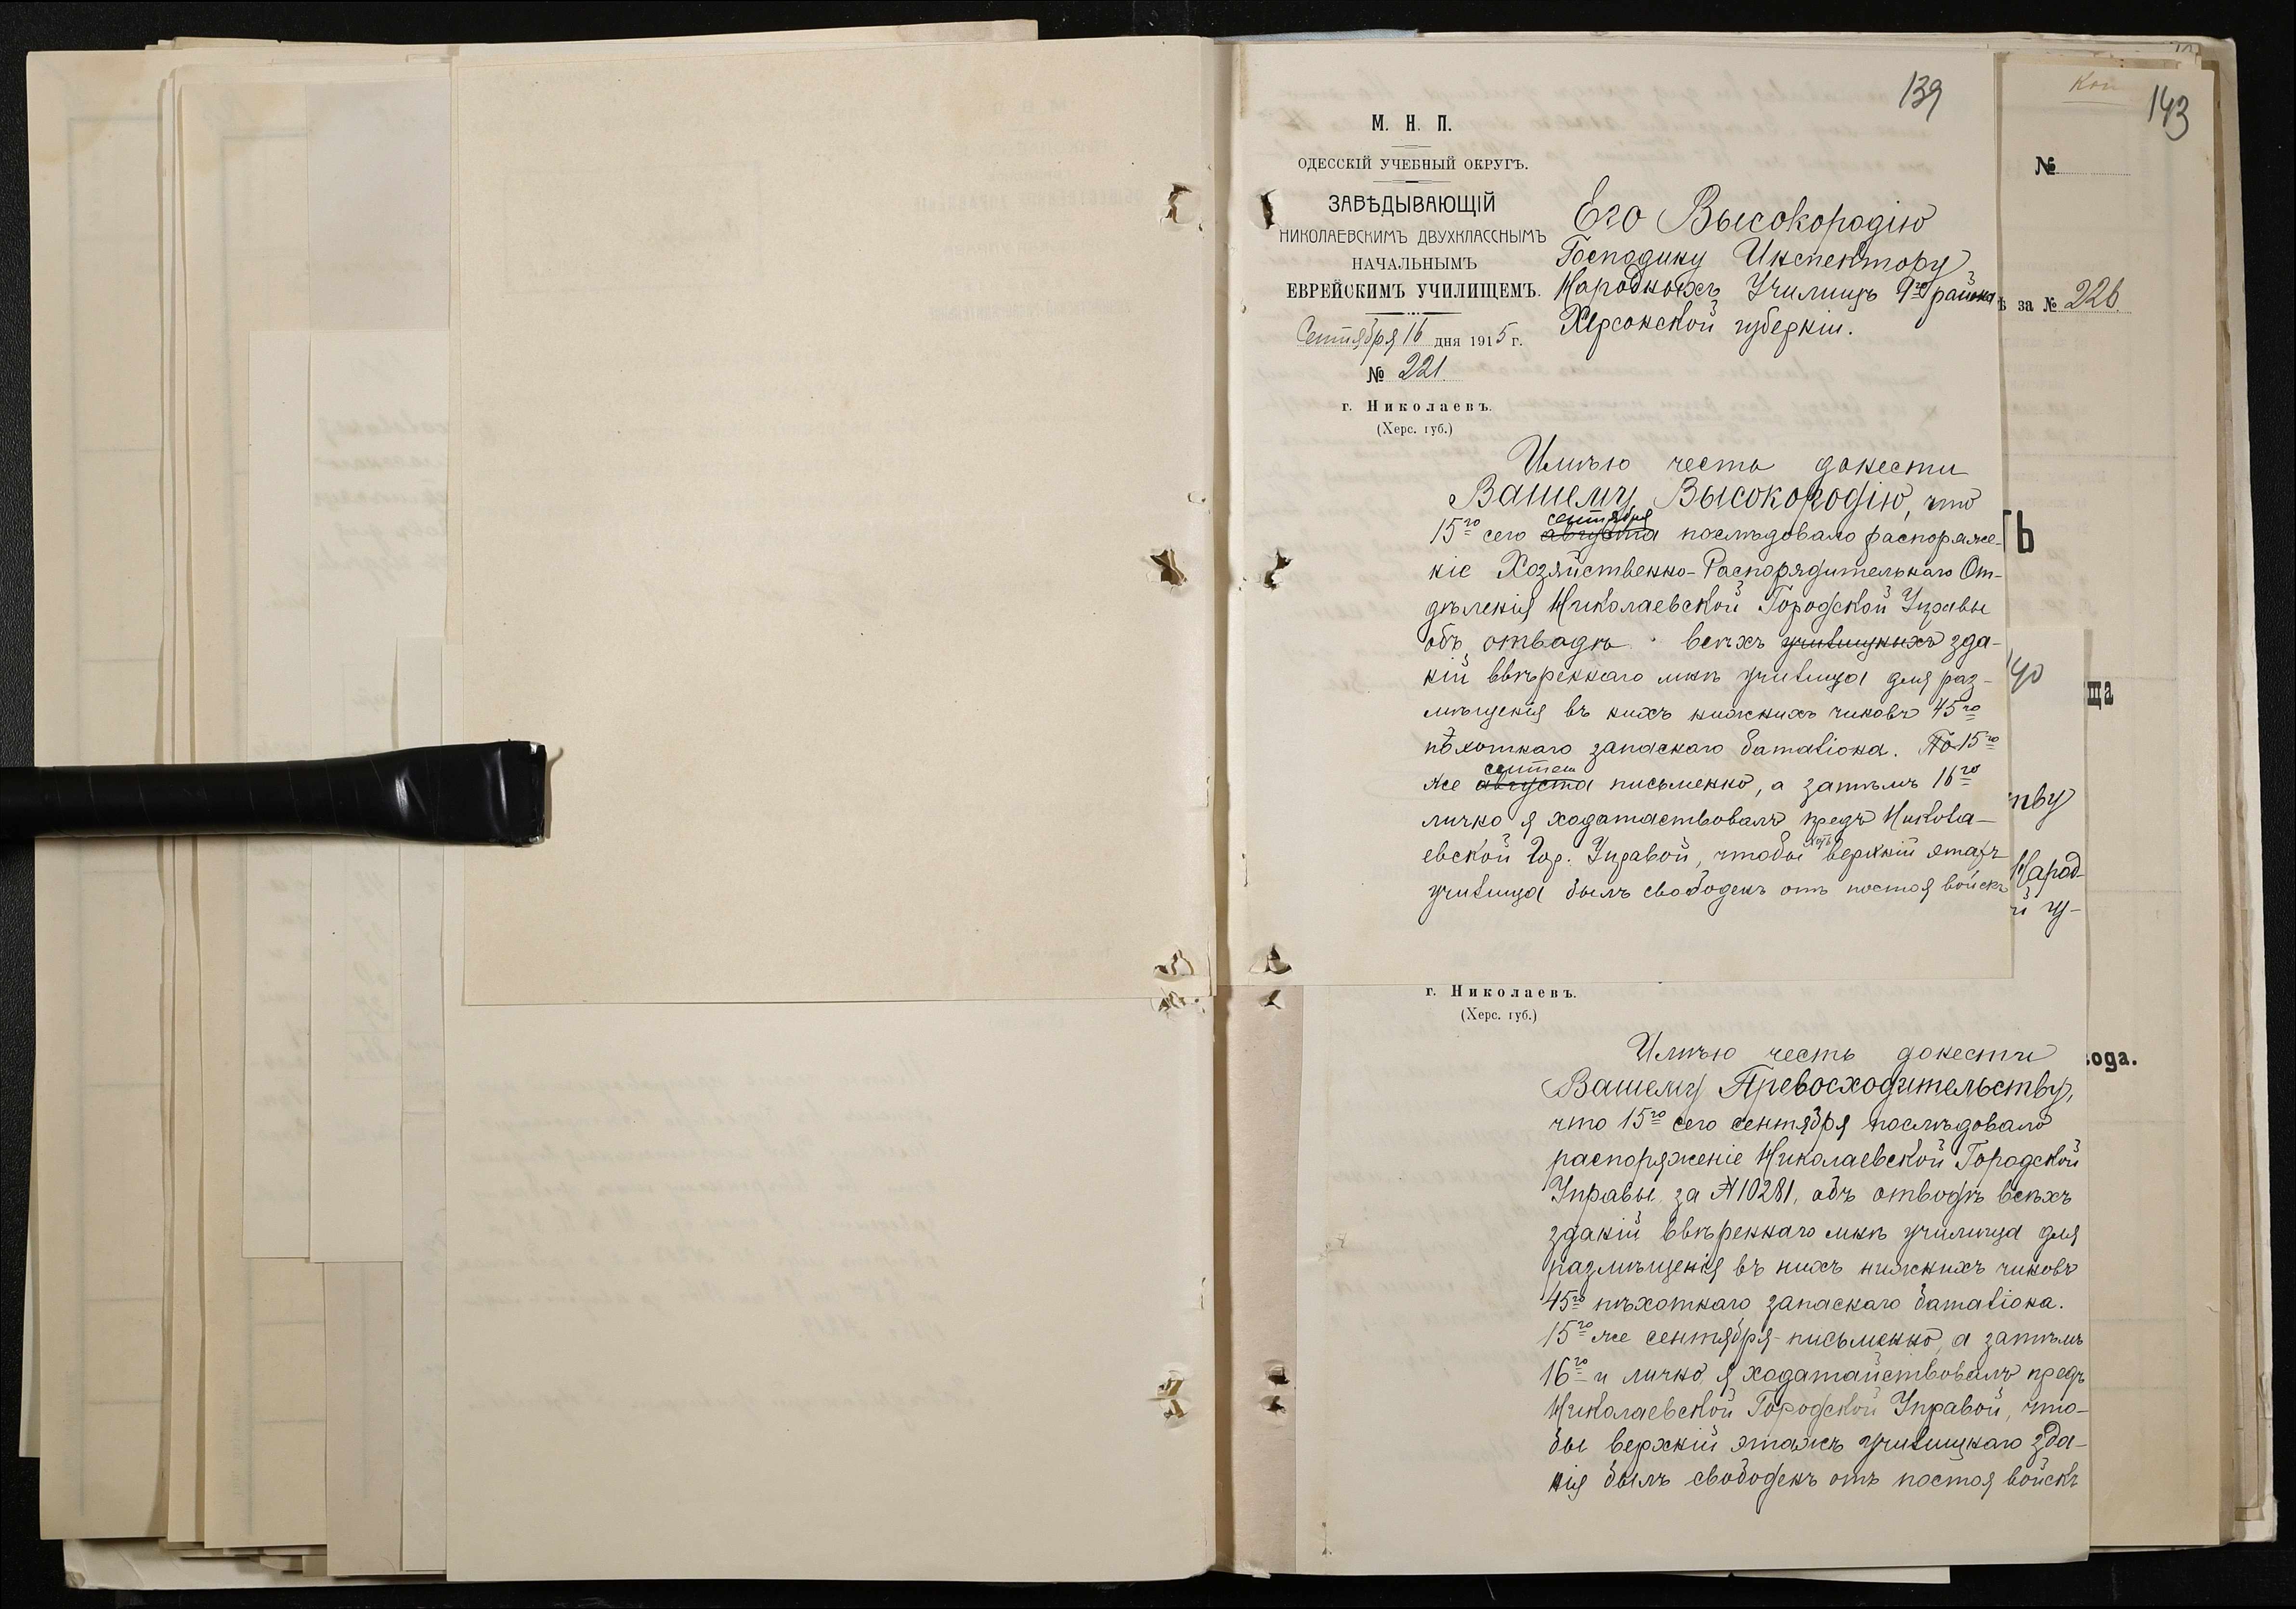 139
М. Н. П.
ОДЕССКІЙ УЧЕБНЫЙ ОКРУГЪ.
ЗАВѢДЫВАЮЩІЙ
НИКОЛАЕВСКИМЪ ДВУХКЛАССНЫМЪ
НАЧАЛЬНЫМЪ
ЕВРЕЙСКИМЪ УЧИЛИЩЕМЪ.
Сентября 16 дня 1915 г.
№ 221.
г. Николаевъ.
(Херс. губ.)
Его Высокородію
Господину Инспектору
Народныхъ Училищъ 9го района
Херсонской губерніи.
Имѣю честь донести
Вашему Высокородію, что
15го сего августа сентября послѣдовало распоряже-
ніе Хозяйственно-Распорядительнаго От-
дѣленія Николаевской Городской Управы
объ отводѣ всѣхъ училищныхъ зда-
ній ввѣреннаго мнѣ училища для раз-
мѣщенія въ нихъ нижнихъ чиновъ 45го
пѣхотнаго запаснаго баталіона. 15го
же августа письменно, а затѣмъ 16го
лично я ходатаствовалъ предъ Никола-
евской Гор. Управой, чтобы хоть верхній этажъ
училища былъ свободенъ отъ постоя войскъ
г. Николаевъ.
(Херс. губ.)
Имѣю честь донести
Вашему Превосходительству,
что 15го сего сентября послѣдовало
распоряженіе Николаевской Городской
Управы за № 10281, объ отводѣ всѣхъ
зданій ввѣреннаго мнѣ училища для
размѣщенія въ нихъ нижнихъ чиновъ
45го пѣхотнаго запаснаго баталіона.
15го же сентября письменно, а затѣмъ
16го и лично я ходатайствовалъ предъ
Николаевской Городской Управой, что-
бы верхній этажъ училищнаго зда-
нія былъ свободенъ отъ постоя войскъ
40
тву
Народ-
й гу-
143
Коп
№
ѣ за № 226.
Ь
ща
ода.